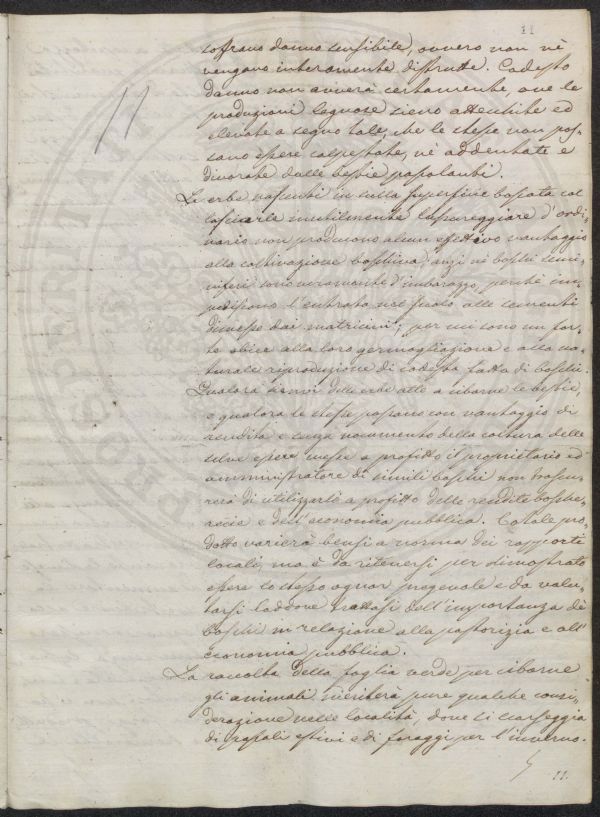 11
11
soffrano danno sensibile, ovvero non vè
vengano interamente distrutte. Codesto
danno non avverà certamente, ove le
produzioni legnose sieno attecchite ed
elevate a segno tale, che le stesse non pos=
sano essere calpestate, nè addentate e
divorate dalle bestie pascolanti.
Le erbe nascenti in sulla superficie boscata col
lasciarle inutilmente lussureggiare d'ordi=
nario non producono alcun effettivo vantaggio
alla coltivazione boschiva; anzi nè boschi semi=
niferi sono veramente d'imbarazzo, perchè im=
pediscono l'entrata nel suolo alle sementi
dimesse dai matricini; per cui sono un for=
te obice alla loro germogliazione e alla na=
turale riproduzione di codesta fatta di boschi.
Qualora sienvi delle erbe atte a cibarne le bestie,
e qualora le stesse possano con vantaggio di
rendita e senza nocumento della coltura delle
selve essere messe a profitto il proprietario ed
amministratore di simili boschi non trascu=
rerà di utilizzarle a profitto delle rendite bosche=
reccie e dell'economia pubblica. Cotale pro=
dotto varierà bensì a norma dei rapporti
locali, ma è da ritenersi per dimostrato
essere lo stesso ognor pregevole e da valu=
tarsi laddove trattasi dell'importanza dè
boschi in relazione alla pastorizia e all'
economia pubblica.
La raccolta della foglia verde per cibarne
gli animali meriterà pure qualche consi=
derazione nelle località, dove si scarseggia
di pascoli estivi e di foraggi per l'inverno.
11.
PROSPERITATI